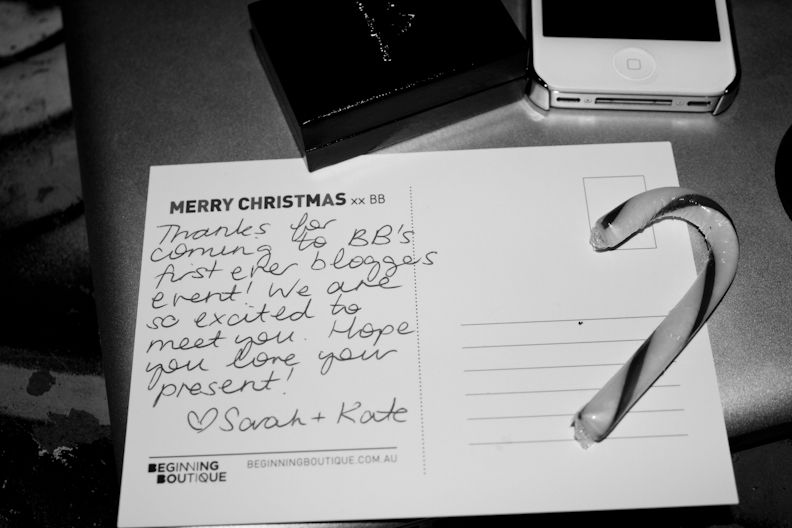 MERRY CHRISTMAS xx BB
Thanks for
coming to BB's
first ever bloggers
event! We are
so excited to
meet you. Hope
you love your
present!
♡ Sarah + Kate
BEGINNING
BOUTIQUE
BEGINNINGBOUTIQUE.COM.AU